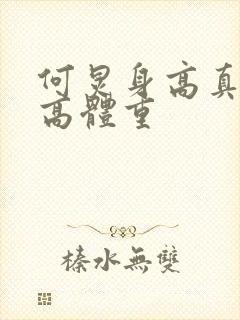 何炅身高真
高體重
榛水無雙